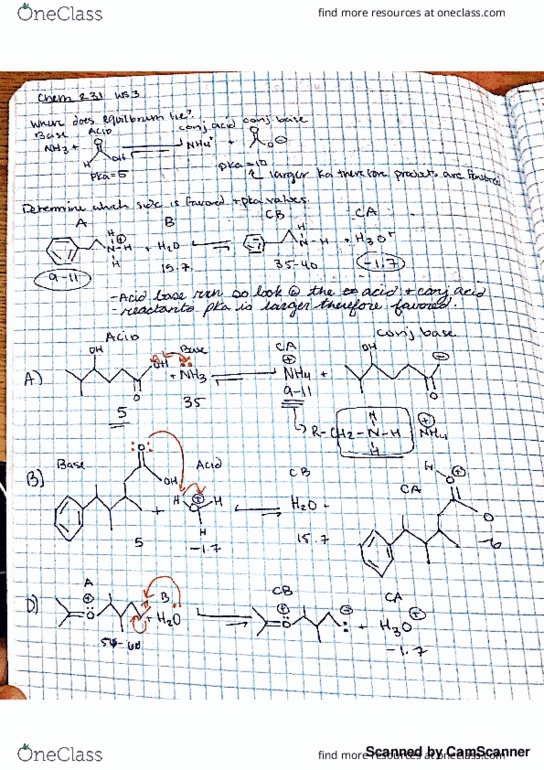 OneClass
find more resources at oneclass.com
Chem 231 WS3
Where does equilibrium lie?
Base Acid conj acid conj base
NH3 + ⇌ NH4+ + O⊖
H OH
pka=5 pka=10
larger Ka therefore products are favored
Determine which side is favored + pka values.
A B CB CA
H ⊕ N-H H + H2O ⇌ H N-H + H3O+
9-11 15.7 35-40 -1.7
-Acid base rxn so look @ the acid + conj acid
-reactants pka is larger therefore favored.
Acid Base CA conj base
A) OH OH O + NH3 ⇌ ⊕ NH4 + OH ⊖ O
5 35 9-11
R-CH2-N-H H H ⊕ NH4
Base Acid CB CA
B) O OH + H O H H ⊕ ⇌ H2O + H O ⊕ O
5 -1.7 15.7 -6
A B CB CA
D) ⊕ O + H2O ⇌ ⊕ O ⊖ + H3O ⊕
-1.7
OneClass
find more resources at oneclass.com
Scanned by CamScanner